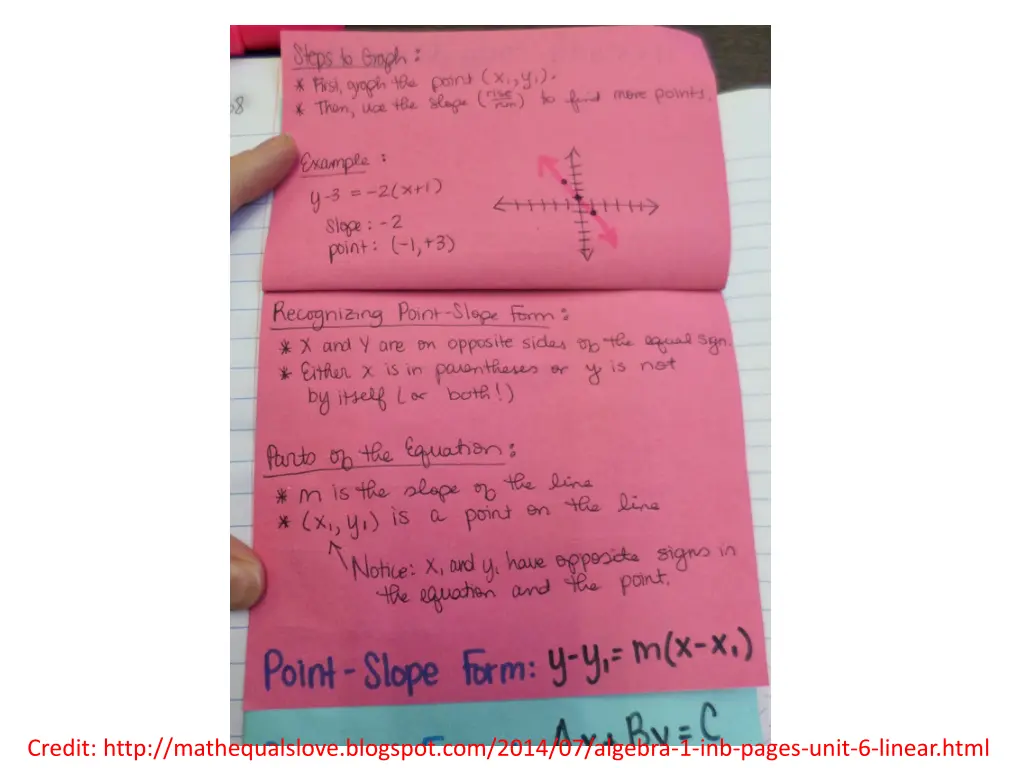 Steps to Graph:
* First, graph the point (x₁, y₁).
* Then, use the slope (rise/run) to find more points.
Example:
y-3 = -2(x+1)
slope: -2
point: (-1, +3)
Recognizing Point-Slope Form:
* X and Y are on opposite sides of the equal sign.
* Either x is in parentheses or y is not
by itself (or both!)
Parts of the Equation:
* m is the slope of the line
* (x₁, y₁) is a point on the line
Notice: x₁ and y₁ have opposite signs in
the equation and the point.
Point-Slope Form: y-y₁= m(x-x₁)
By = C
Credit: http://mathequalslove.blogspot.com/2014/07/algebra-1-inb-pages-unit-6-linear.html